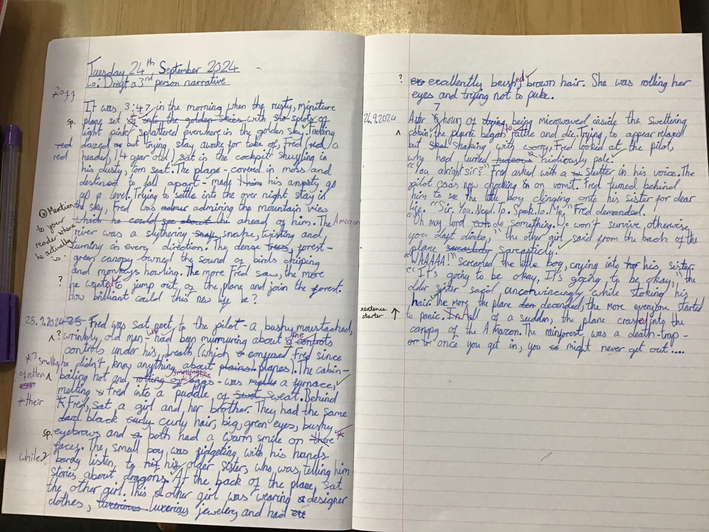 Tuesday 24th September 2024
Lo: Draft a 3rd person narrative
2011
It was 3:47 in the morning when the rusty, miniture
sp. plane set only the golden skies with splots of
light pinker splattered everwhere in the golden sky. Looking
red dazed but trying stay awake for take of, Fred, a
red headed, 14 year old, sat in the cockpit shuffling in
his dusty, torn seat. The plane - covered in moss and
destined to fall apart - made his anxiety go
up a level. Trying to settle into the over night stay in
the sky, Fred was admiring the mountain view
which the ahead of him. The Amazon
river was a slythering snake, twisting and
turning in every direction. The dense forest -
green canopy owned the sound of birds chirping
and monkeys howling. The more Fred saw, the more
? he wanted to jump out of the plane and join the forest.
How brilliant could this new life be?
Mention to your reader where he actually is.
25.9.2024 Fred was sat next to the pilot - a bushy moustached,
? wrinkly, old man - had been murmuring about the controls
controls under his breath (which confused Fred since
he didn't know anything about planes). The cabin -
boiling hot and smelly eggs - was a furnace,
melting Fred into a puddle of sweat. Behind
+ their * Fred, sat a girl and her brother. They had the same
black curly hair, big, green eyes, bushy
sp. eyebrows and both had a warm smile on there
faces. The small boy was fidgeting with his hands
while? barely listen to his older sister who was, telling him
stories about dragons. At the back of the place, sat
the other girl. This other girl was wearing designer
clothes, luxerious jewelery and had
? exallently brushed brown hair. She was rolling her
eyes and trying not to puke.
26.9.2024 After 7 hours of being microwaved inside the sweltering
cabin, the plane began to rattle and die. Trying to appear relaxed
but shaking with worry, Fred looked at the pilot,
why had turned hidiously pale.
"You alright sir?" Fred asked with a stutter in his voice. The
pilot was now chocking on vomit. Fred turned behind
him to see the little boy clinging onto his sister for dear
life. "Sir. You. Need. To. Speak. To. Me." Fred demanded.
"O my lord do something. We won't survive, otherwise
you daft dimbo," the other girl said from the back of the
plane sarcasticly.
"WAAAAA!" screamed the little boy, crying into his sister.
"It's going to be okay, It's going to be okay," the
older sister said unconvincingly while stoking his
hair. The more the plane decended, the more everyone started
sentence starter ↑ to panic. All of a sudden, the plane crashed into the
canopy of the Amazon. The rainforest was a death-trap -
once you get in, you might never get out....